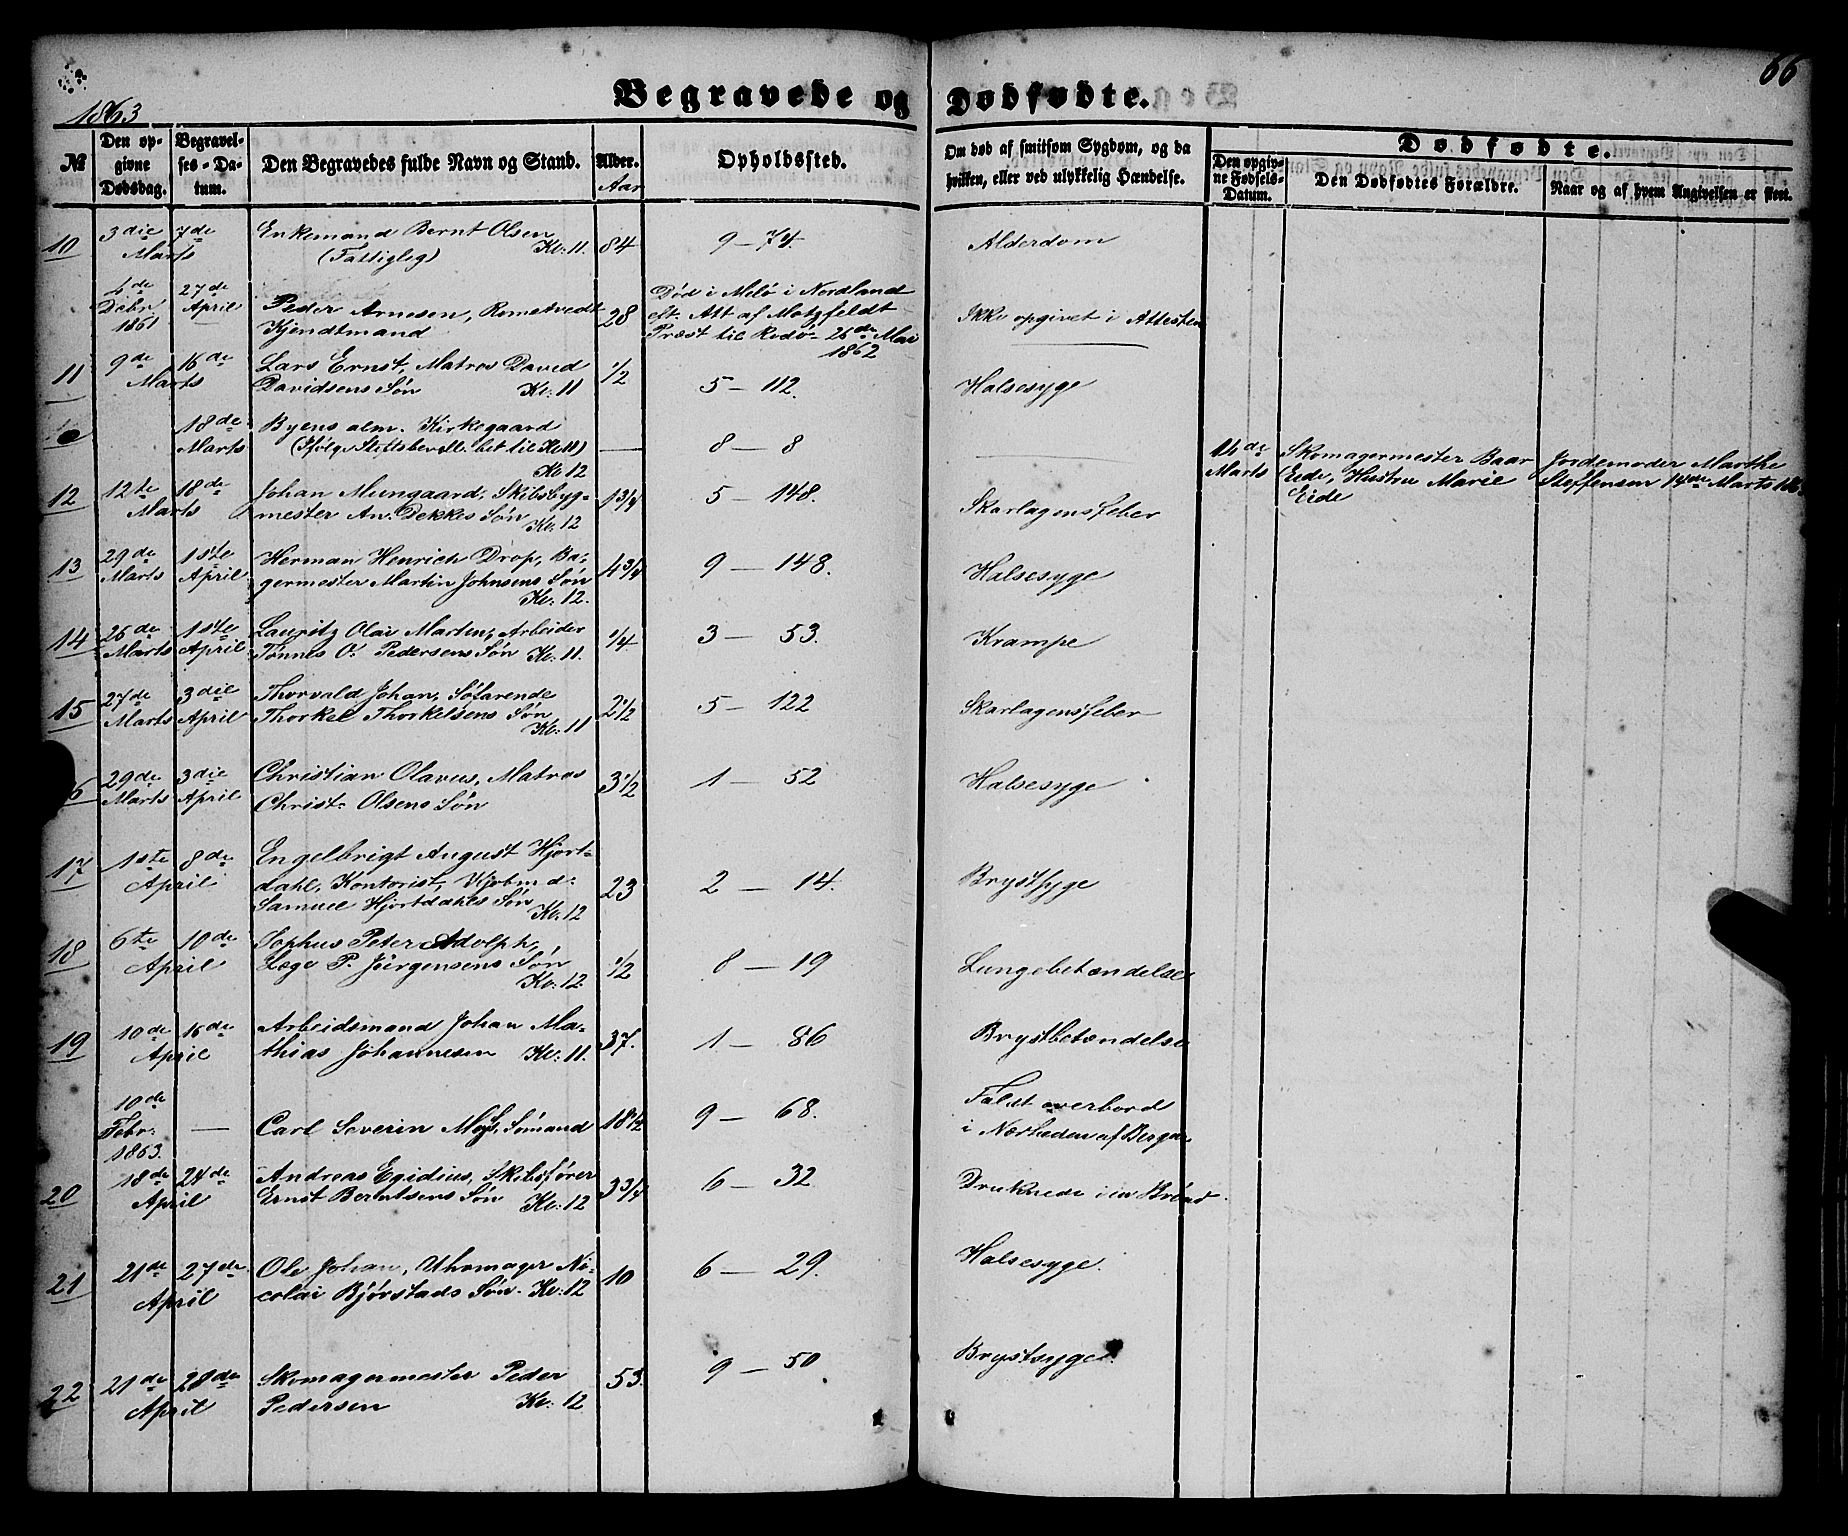 66
1863
Begravede og Dødfødte.
№
Den op-
givne
Dødsdag.
Begravel-
ses-Da-
tum.
Den Begravedes fulde Navn og Stand.
Alder.
Aar
Opholdssted.
Om død af smitsom Sygdom, og da
hvilken, eller ved ulykkelig Hændelse.
Dødfødte.
Den opgiv-
ne Fødsels-
Datum.
Den Dødfødtes Forældre.
Naar og af hvem Angivelsen er skeet.
10 3die Marts 7de Enkemand Bernt Olsen
(Fattiglig) Kl: 11. 84 9 — 74. Alderdom
6de Debr. 1861 27de April
Peder Arnesen, Romstvedt
Kjendtmand 28
Død i Melö i Nordland
eft. Att af Motzfeldt
Præst til Rødö 26de Mai
1862
Ikke opgivet i Attesten
11 9de Marts 16de Lars Ernst, Matros David
Davidsens Søn Kl: 11 1/2 5 — 112. Halsesyge
18de Marts Byens alm. Kirkegaard
Kl 12 — 8 — 8
14de Marts
Skomagermester Baar
Eide, Hustru Marie
Eide
Jordemoder Marthe
Steffensen 14de Marts
12 12te Marts 18de Johan Mungaard, Skibsbyg-
mester An. Dekkes Søn
Kl: 12 1 3/4 5 — 148. Skarlagensfeber
13 29de Marts 1ste April Herman Henrich Drop, Ba-
germester Martin Johnsens Søn
Kl: 12. 4 3/4 9 — 148. Halsesyge
14 26de Marts 1ste April Lauritz Olai Martin, Arbeider
Tønnes O. Pedersens Søn Kl: 11. 1/4 3 — 53. Krampe
15 27de Marts 3die April Thorvald Johan, Søfarende
Thorkel Thorkelsens Søn
Kl: 11 2 1/2 5 — 122 Skarlagensfeber
6 29de Marts 3die April Christian Olavus, Matros
Christ. Olsens Søn 3 1/2 1 — 52 Halsesyge
17 1ste April 8de Engelbrigt August Hjort-
dahl, Kontorist, Kjøbmd:
Samuel Hjortdahls Søn
Kl: 12 23 2 — 14. Brystsyge
18 6te April 10de Sophus Peter Adolph,
Læge P. Jürgensens Søn
Kl: 12. 1/2 8 — 19 Lungebetændelse
19 10de April 16de Arbeidsmand Johan Ma-
thias Johannesen Kl: 11. 37. 1 — 86 Brystbetændelse
10de Febr: 1863. —
Carl Severin Moss, Sømand 18 1/2 9 — 68.
Faldt overbord
i Nærheden af Bergen
20 18de April 24de Andreas Egidius, Skibsfører
Ernst Berntsens Søn Kl: 12 3 3/4 6 — 32 Druknede i en Brønd.
21 21de April 27de Ole Johan, Uhrmager Ni-
colai Bjørstads Søn. Kl: 12 10 6 — 29. Halsesyge.
22 21de April 28de Skomagermester Peder
Pedersen Kl: 12. 53. 9 — 50 Brystsyge.